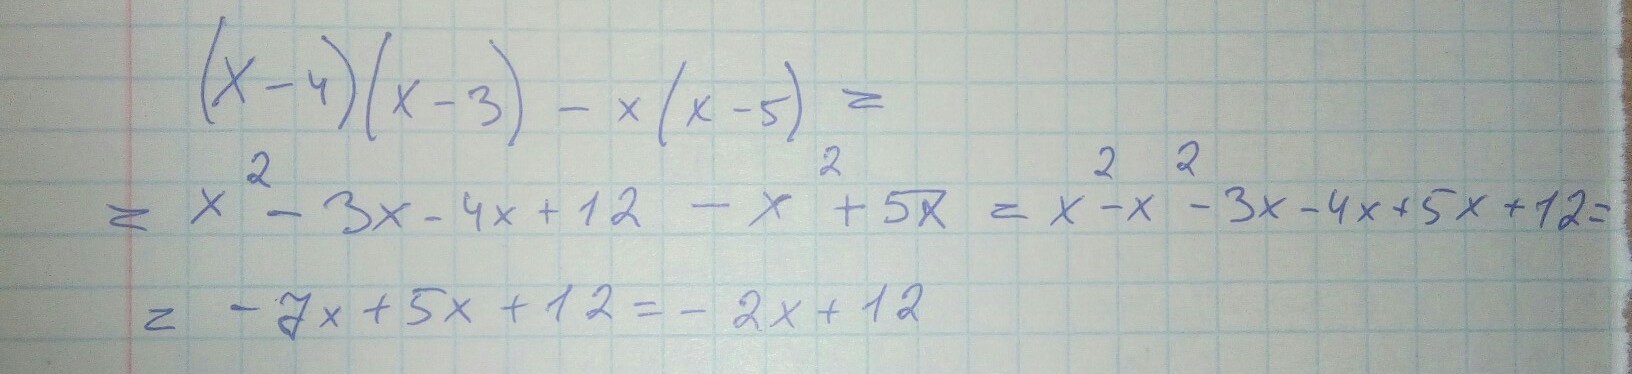 (x-4)(x-3) - x(x-5) =
= x² - 3x - 4x + 12 - x² + 5x = x² - x² - 3x - 4x + 5x + 12 =
= - 7x + 5x + 12 = - 2x + 12